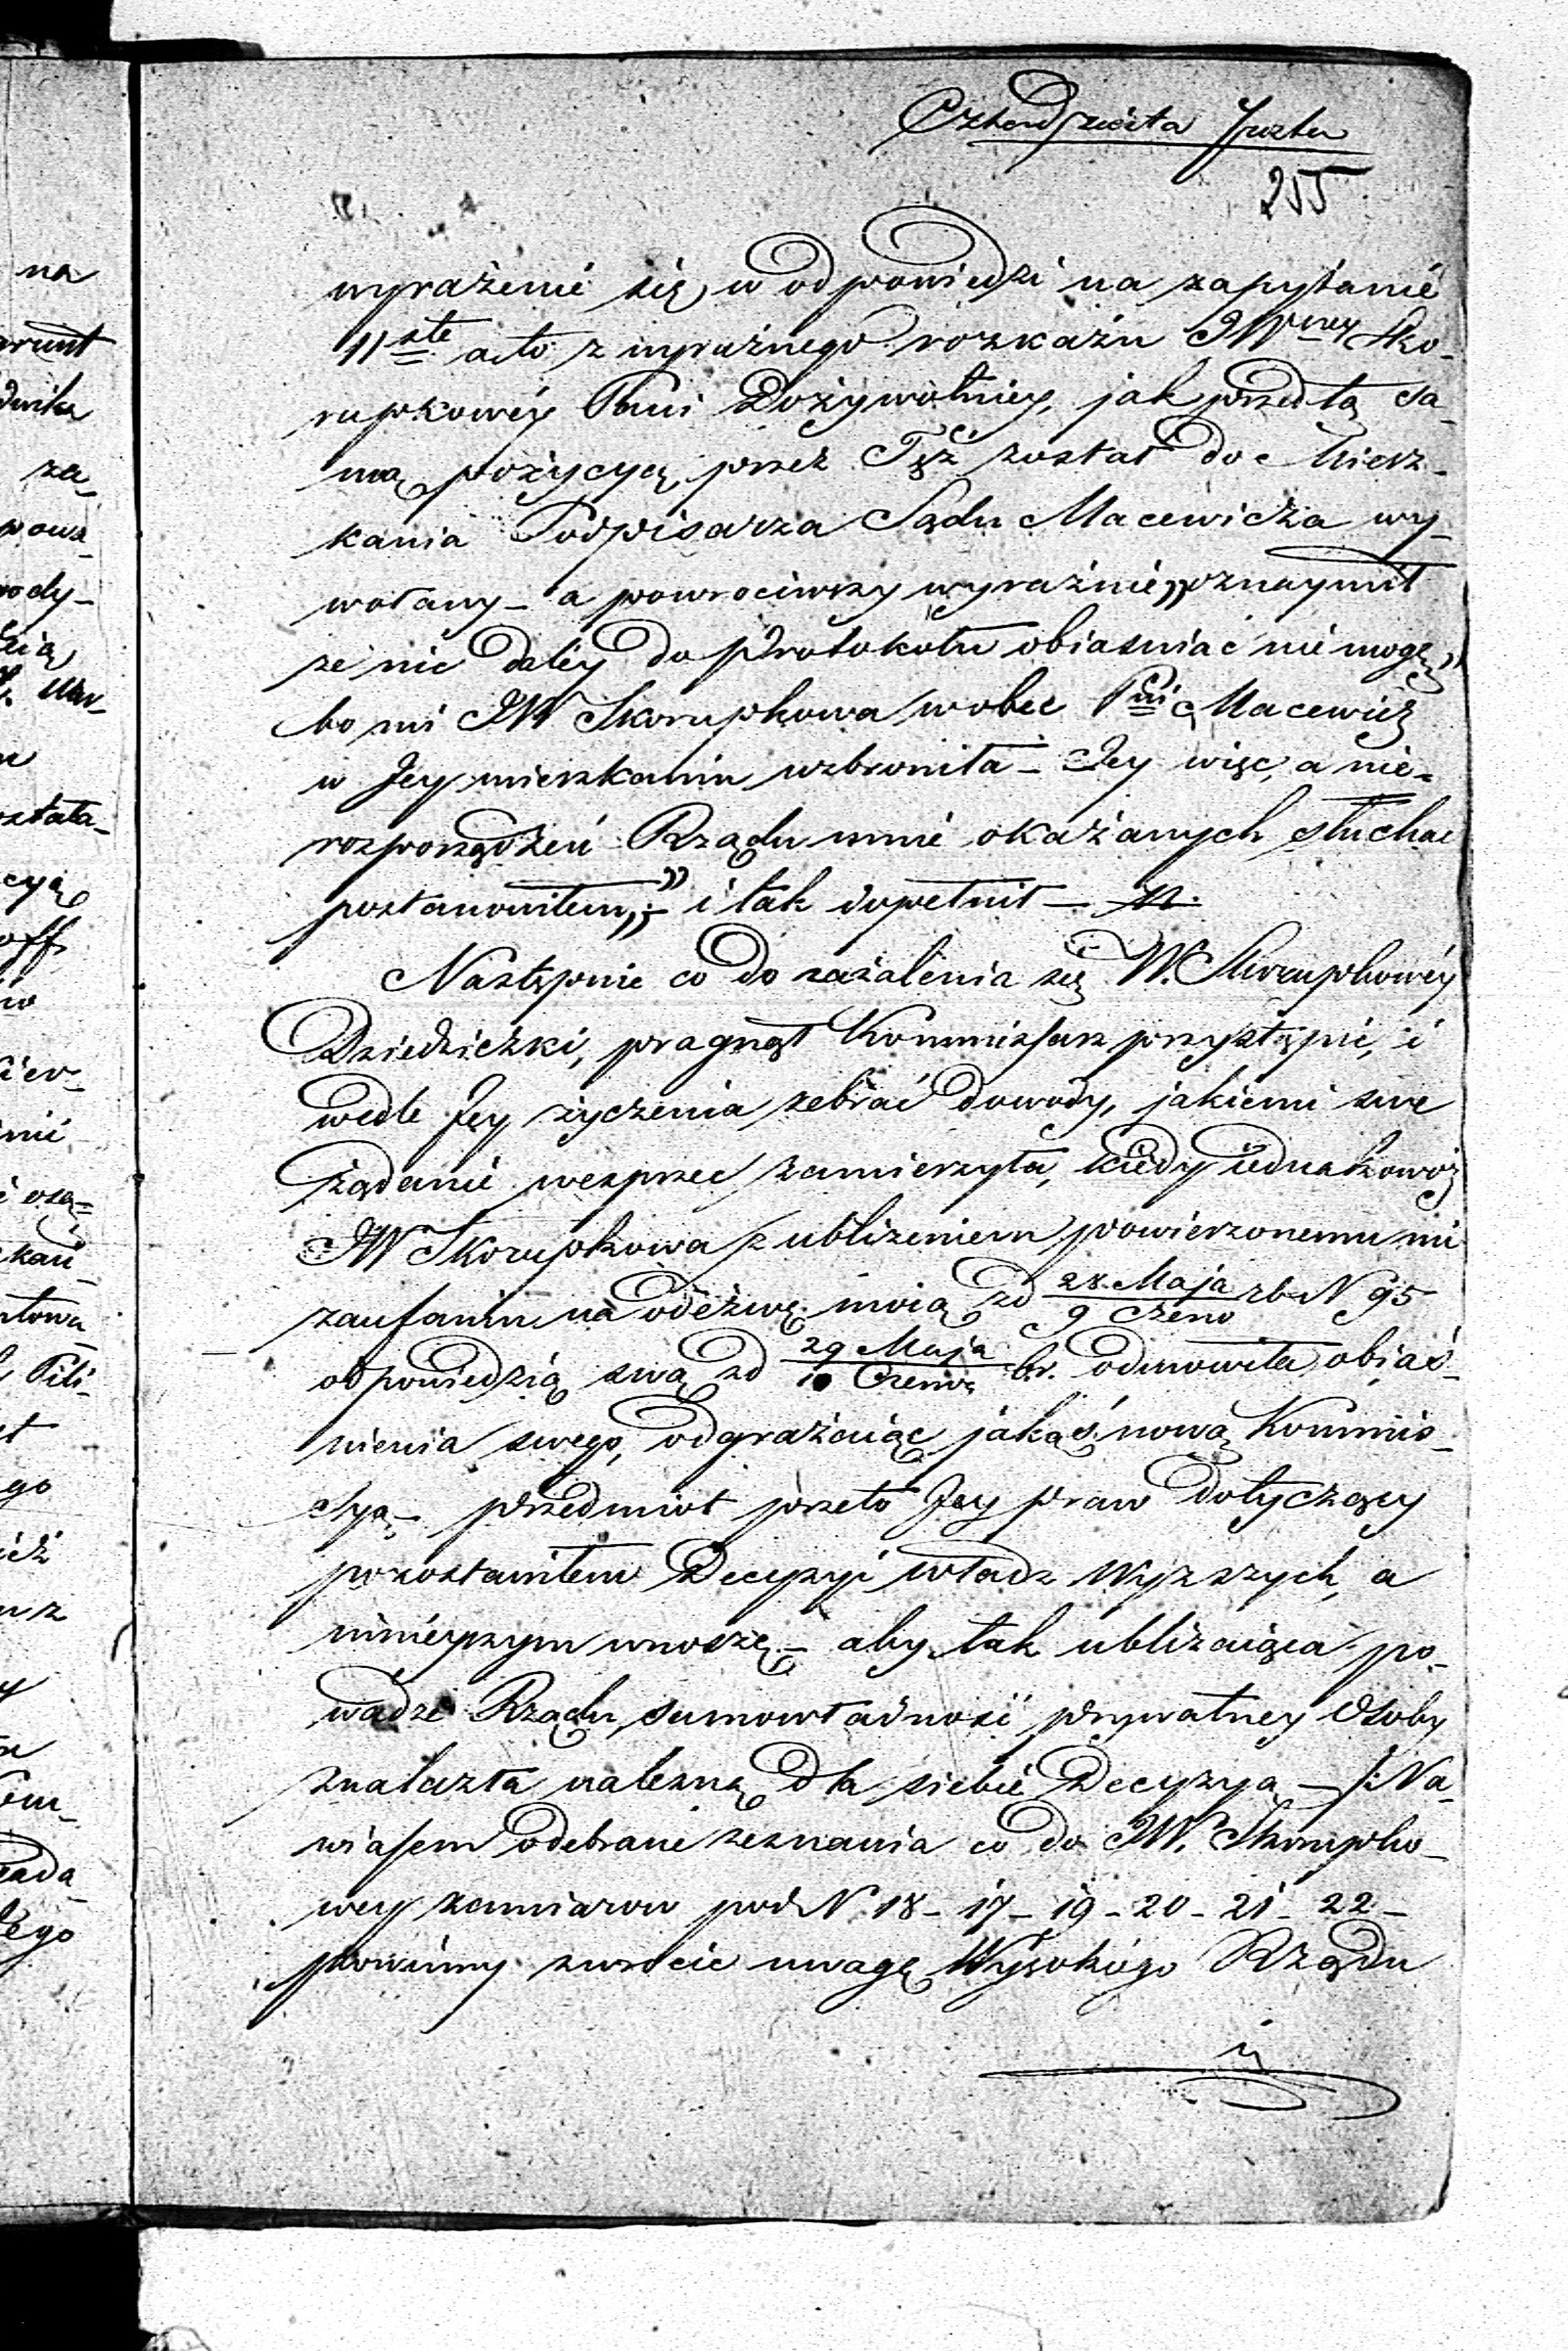 Czterdziesta
255
wyrażenie się w odpowiedzi na zapytanie
11ste a to z wyraźnego rozkazu JWney Sko-
rupkowéy Pani Dożywotniey, jak przed tą sa-
mą pozycyą przez Tęż został do Miesz-
kania Podpisarza Sądu Macewicza wy-
wołany – a powrociwszy wyraźnie „oznaymił
że nic daléy do Protokołu obiasniać nie mogę"
bo mi JW Skorupkowa wobec Pni Macewicz
w Jey mieszkaniu wzbroniła – Jey więc, a nie-
rozporządzeń Rządu mnie okazanych słuchac
postanowiłem„ – " i tak dopełnił –
Następnie co do zażalenia się W. Skorupkowéy
Dziedziczki, pragnął Kommissarz przystąpić, i
wedle Jey życzenia zebrać dowody, jakiemi swe
żądanie wesprzec zamierzyła, kiedy iednakowoż
JW Skorupkowa z ubliżeniem powierzonemu mi
zaufaniu na odezwę moią zd 28. Maja / 9 Czerw rb N 95
odpowiedzią swą zd 29 Maja / 10 Czerwc br. odmowiła obiaś-
nienia swego, odgrażaiąc jakąś nową Kommis-
syą – przedmiot przeto Jey praw dotyczący
pozostawiłem Decyzyi władz Wyzszych, a
ninieyszym wnoszę – aby tak ubliżaiąca po-
wadze Rządu, samowładność prywatney Osoby
znalazła należną dla siebie Decyzyą – /: Na-
wiasem odebrane zeznania co do JW. Skorupko-
wey zamiarow pod N 18 – 17 – 19 – 20 – 21 – 22 –
powinny zwrocic uwagę Wysokiego Rządu